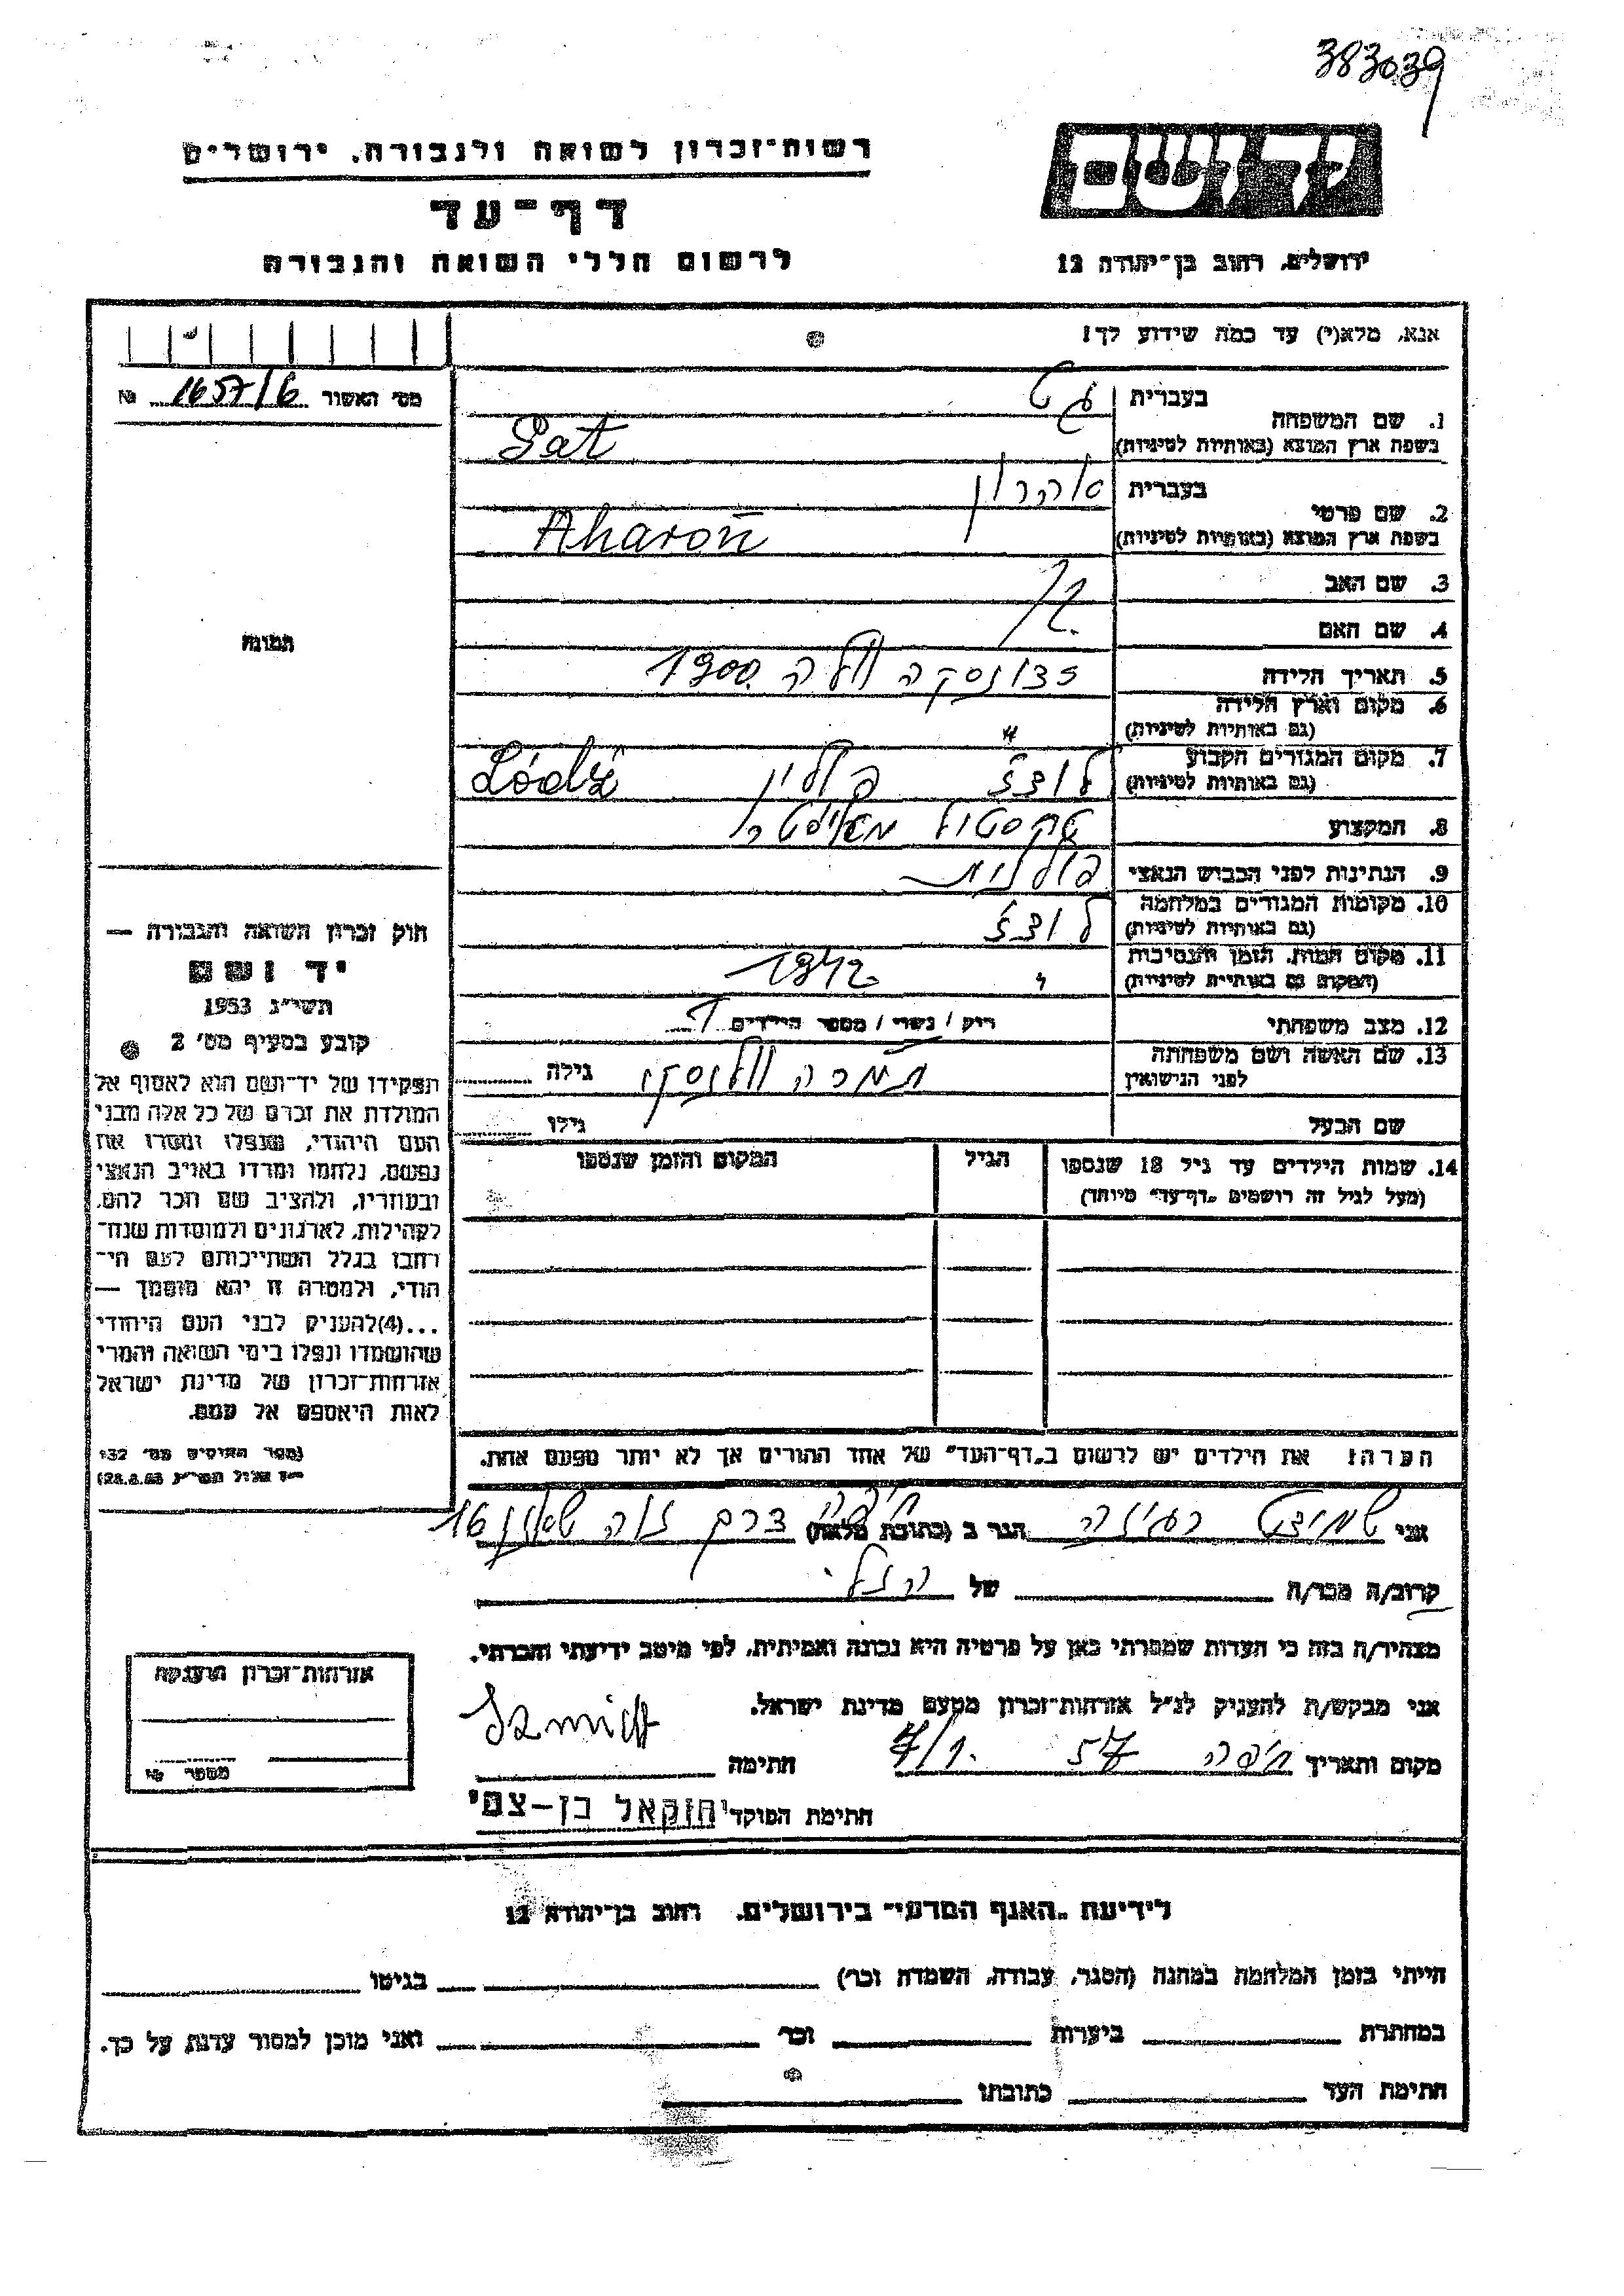 383039
רשות־זכרון לשואה ולגבורה, ירושלים
דף־עד
לרשום חללי השואה והגבורה
יד ושם
ירושלים, רחוב בן־יהודה 12
אנא, מלא(י) עד כמה שידוע לך!
מס׳ האשור 1657/6 №
1. שם המשפחה
בעברית גט
בשפת ארץ המוצא (באותיות לטיניות) Gat
2. שם פרטי
בעברית אהרון
בשפת ארץ המוצא (באותיות לטיניות) Aharon
3. שם האב
4. שם האם
5. תאריך הלידה 1900
6. מקום וארץ הלידה
(גם באותיות לטיניות) "
7. מקום המגורים הקבוע לודז׳ פולין Łódź
(גם באותיות לטיניות)
8. המקצוע טקסטיל
9. הנתינות לפני הכבוש הנאצי פולנית
10. מקומות המגורים במלחמה
(גם באותיות לטיניות) לודז׳
11. מקום המות, הזמן והנסיבות 1942
(המקום גם באותיות לטיניות)
12. מצב משפחתי רוק / נשוי / מספר הילדים 1
13. שם האשה ושם משפחתה
לפני הנישואין תמרה גילה
שם הבעל גילו
14. שמות הילדים עד גיל 18 שנספו הגיל המקום והזמן שנספו
(מעל לגיל זה רושמים „דף־עד״ מיוחד)
הערה: את הילדים יש לרשום ב„דף־העד״ של אחד ההורים אך לא יותר מפעם אחת.
תמונה
חוק זכרון השואה והגבורה —
יד ושם
תשי״ג 1953
קובע בסעיף מס׳ 2
תפקידו של יד־ושם הוא לאסוף אל
המולדת את זכרם של כל אלה מבני
העם היהודי, שנפלו ומסרו את
נפשם, נלחמו ומרדו באויב הנאצי
ובעוזריו, ולהציב שם וזכר להם,
לקהילות, לארגונים ולמוסדות שנח־
רבו בגלל השתייכותם לעם הי־
הודי, ולמטרה זו יהא מוסמך —
...(4) להעניק לבני העם היהודי
שהושמדו ונפלו בימי השואה והמרי
אזרחות־זכרון של מדינת ישראל
לאות היאספם אל עמם.
(ספר החוקים מס׳ 132
28.8.53)
אני שמידט הגר ב (כתובת מלאה) חיפה דרך נוה שאנן 16
קרוב/ה מכר/ה של הנ״ל
מצהיר/ה בזה כי העדות שמסרתי כאן על פרטיה היא נכונה ואמיתית, לפי מיטב ידיעתי והכרתי.
אני מבקש/ת להעניק לנ״ל אזרחות־זכרון מטעם מדינת ישראל.
מקום ותאריך חיפה 57 חתימה Szmidt
חתימת הפוקד יחזקאל בן-צמי
אזרחות־זכרון הוענקה
מספר
לידיעת „האגף המדעי״ בירושלים, רחוב בן־יהודה 12
הייתי בזמן המלחמה במחנה (הסגר, עבודה, השמדה וכו׳) בגיטו
במחתרת ביערות וכו׳ ואני מוכן למסור עדות על כך.
חתימת העד כתובתו